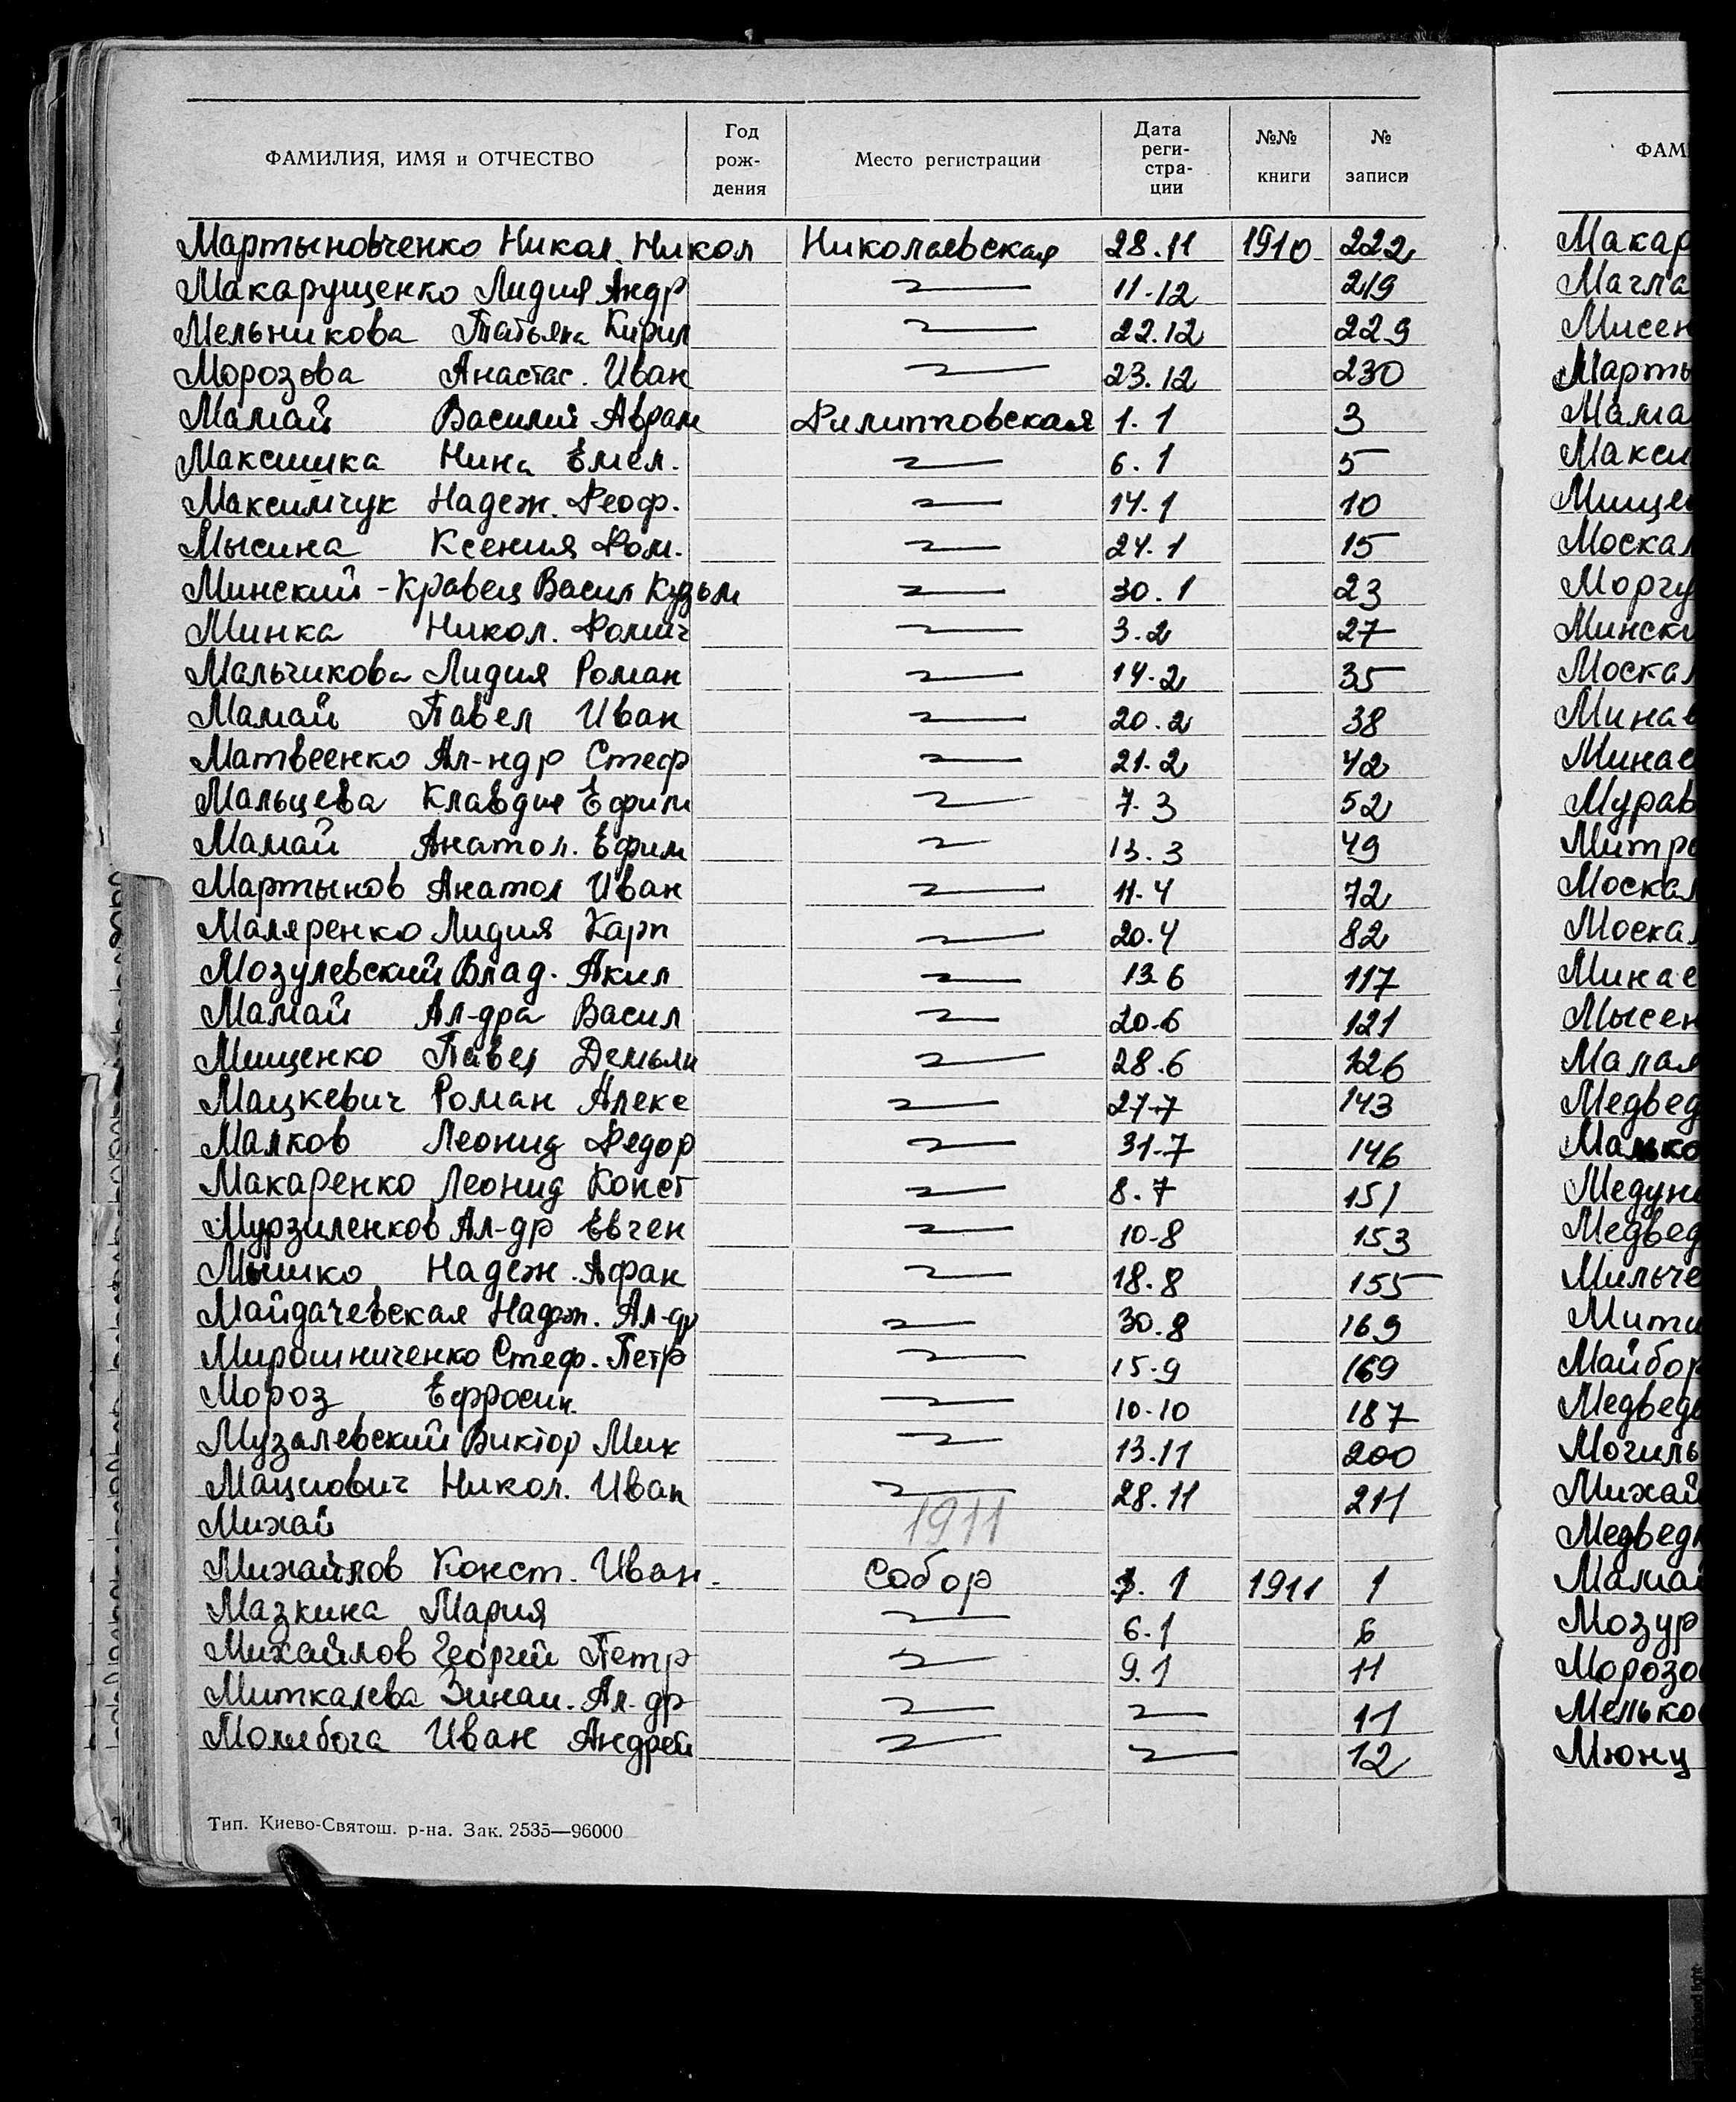 ФАМИЛИЯ, ИМЯ и ОТЧЕСТВО Год рождения Место регистрации Дата регистрации №№ книги № записи
Мартыновченко Никол. Никол Николаевская 28.11 1910 222
Макарущенко Лидия Андр 11.12 219
Мельникова Татьяна Кирил 22.12 229
Морозова Анастас. Иван 23.12 230
Мамай Василий Аврам Филипповская 1.1 3
Максишка Нина Емел. 6.1 5
Максимчук Надеж. Феоф. 14.1 10
Мысина Ксения Фом. 24.1 15
Минский-Кравец Васил Кузьм 30.1 23
Минка Никол. Фомич 3.2 27
Мальчикова Лидия Роман 14.2 35
Мамай Павел Иван 20.2 38
Матвеенко Ал-ндр Стеф 21.2 42
Мальцева Клавдия Ефим 7.3 52
Мамай Анатол. Ефим 13.3 49
Мартынов Анатол Иван 11.4 72
Маляренко Лидия Карп 20.4 82
Мозулевский Влад. Акил 13.6 117
Мамай Ал-дра Васил 20.6 121
Мищенко Павел Демьян 28.6 126
Мацкевич Роман Алекс 27.7 143
Малков Леонид Федор 31.7 146
Макаренко Леонид Конст 8.7 151
Мурзиленков Ал-др Евген 10.8 153
Мышко Надеж. Афан 18.8 155
Майдачевская Надеж. Ал-др 30.8 169
Мирошниченко Стеф. Петр 15.9 169
Мороз Ефросин. 10.10 187
Музалевский Виктор Мик 13.11 200
Мациович Никол. Иван 28.11 211
Михай 1911
Михайлов Конст. Иван. Собор 1. 1 1911 1
Мазкина Мария 6.1 6
Михайлов Георгий Петр 9.1 11
Миткалева Зинаи. Ал-др 11
Молибога Иван Андрей 12
Тип. Киево-Святош. р-на. Зак. 2535—96000
ФАМ
Макар
Магла
Мисен
Марты
Мама
Макси
Мищен
Москал
Моргу
Мински
Москал
Минае
Мурав
Митро
Москал
Москал
Минае
Мысен
Малая
Медвед
Малько
Медун
Медвед
Мильче
Мити
Майбор
Медведе
Могиль
Михай
Медвед
Мамай
Мозур
Морозо
Мелько
Мюнц